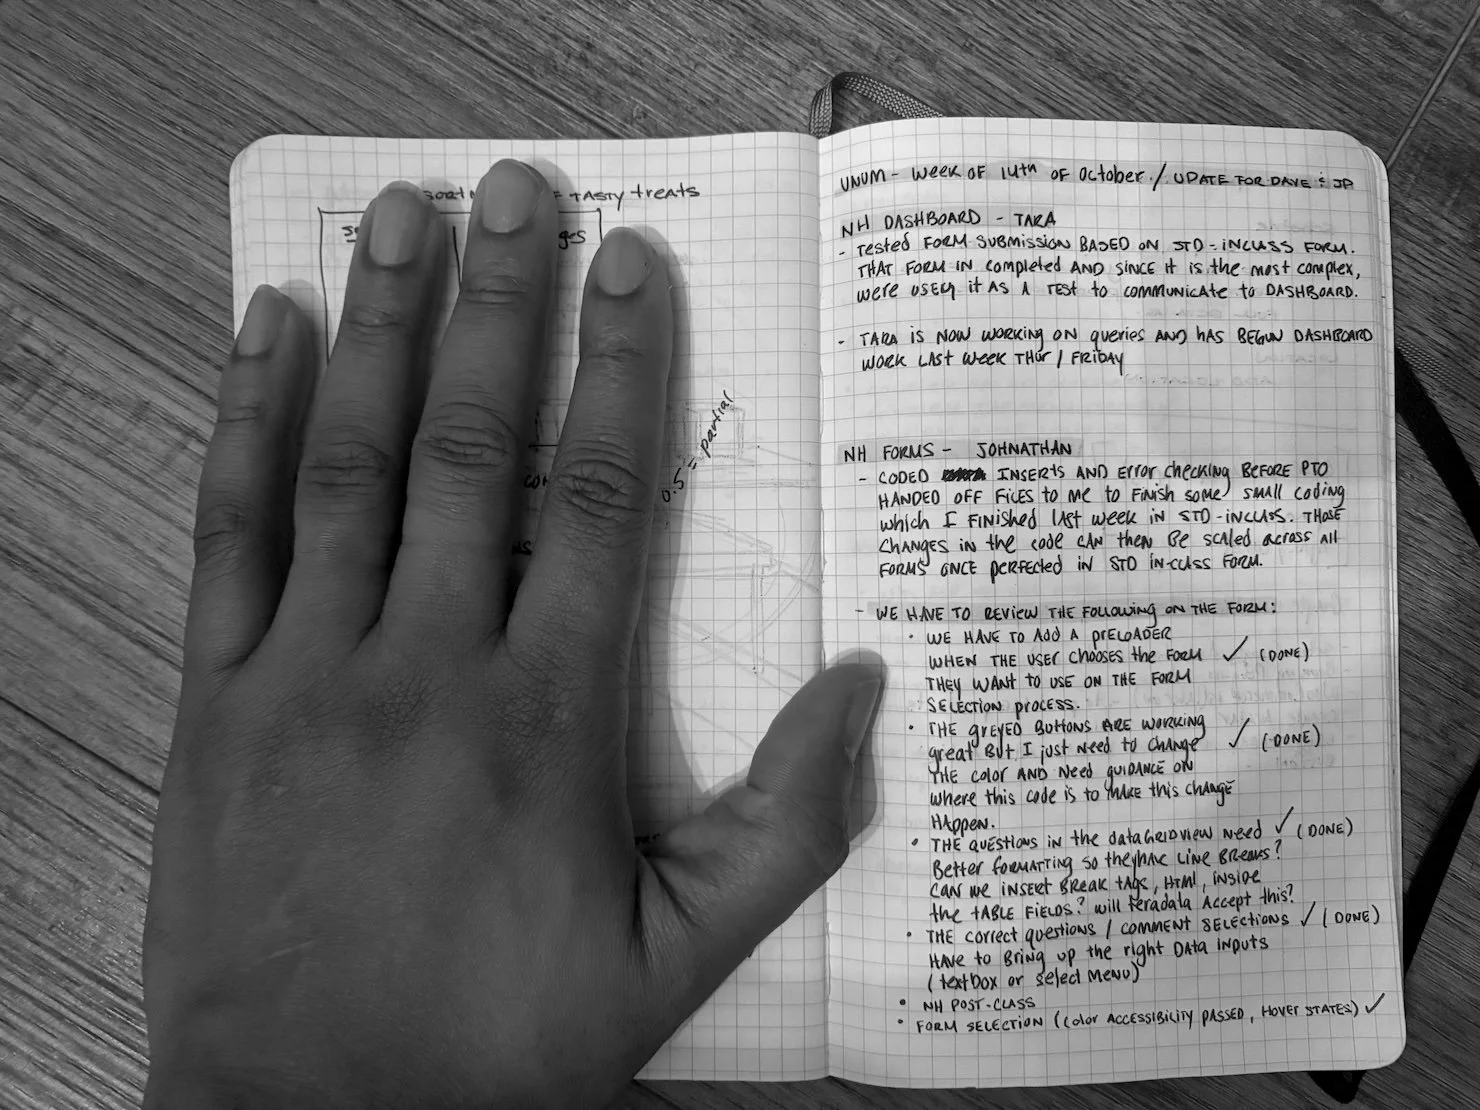 SORT
TASTY treats
ges
0.5 = partial
UNUM - Week OF 14th OF October / UPDATE FOR DAVE & JP
NH DASHBOARD - TARA
- Tested FORM SUBMISSION BASED ON STD-INCLASS FORM.
THAT FORM IN completed AND SINCE it is the most complex,
were USEing it AS A TEST to communicate to DASHBOARD.
- TARA IS NOW WORKING ON queries AND HAS BEGUN DASHBOARD
WORK LAST Week THUR / FRIDAY
NH FORMS - JOHNATHAN
- CODED INSERTS AND Error checking BEFORE PTO
HANDED OFF FILES to ME to FINISH some small coding
which I FINISHED last week in STD-INCLASS. THOSE
CHANGES IN the code CAN then Be scaled across All
FORMS ONCE perfected in STD IN-CLASS FORM.
- WE HAVE TO REVIEW THE FOLLOWING ON THE FORM:
• WE HAVE TO ADD A PRELOADER
WHEN THE USER CHOOSES the FORM ✓ (DONE)
THEY WANT TO USE ON THE FORM
SELECTION PROCESS.
• THE GREYED BUTTONS ARE WORKING
great But I just Need to change ✓ (DONE)
THE COLOR AND Need GUIDANCE ON
Where this code is to MAKE this CHANGE
HAPPEN.
• THE QUESTIONS IN the DATAGRIDVIEW NEED ✓ (DONE)
Better FORMATTING so they have LINE BREAKS?
CAN WE INSERT BREAK TAGS, HTML, INSIDE
the TABLE FIELDS? Will Teradata Accept this?
• THE Correct questions / COMMENT SELECTIONS ✓ (DONE)
HAVE to BRING up the right DATA INPUTS
(textbox or select MENU)
• NH POST-CLASS
• FORM SELECTION (Color ACCESSIBILITY PASSED, HOVER STATES) ✓